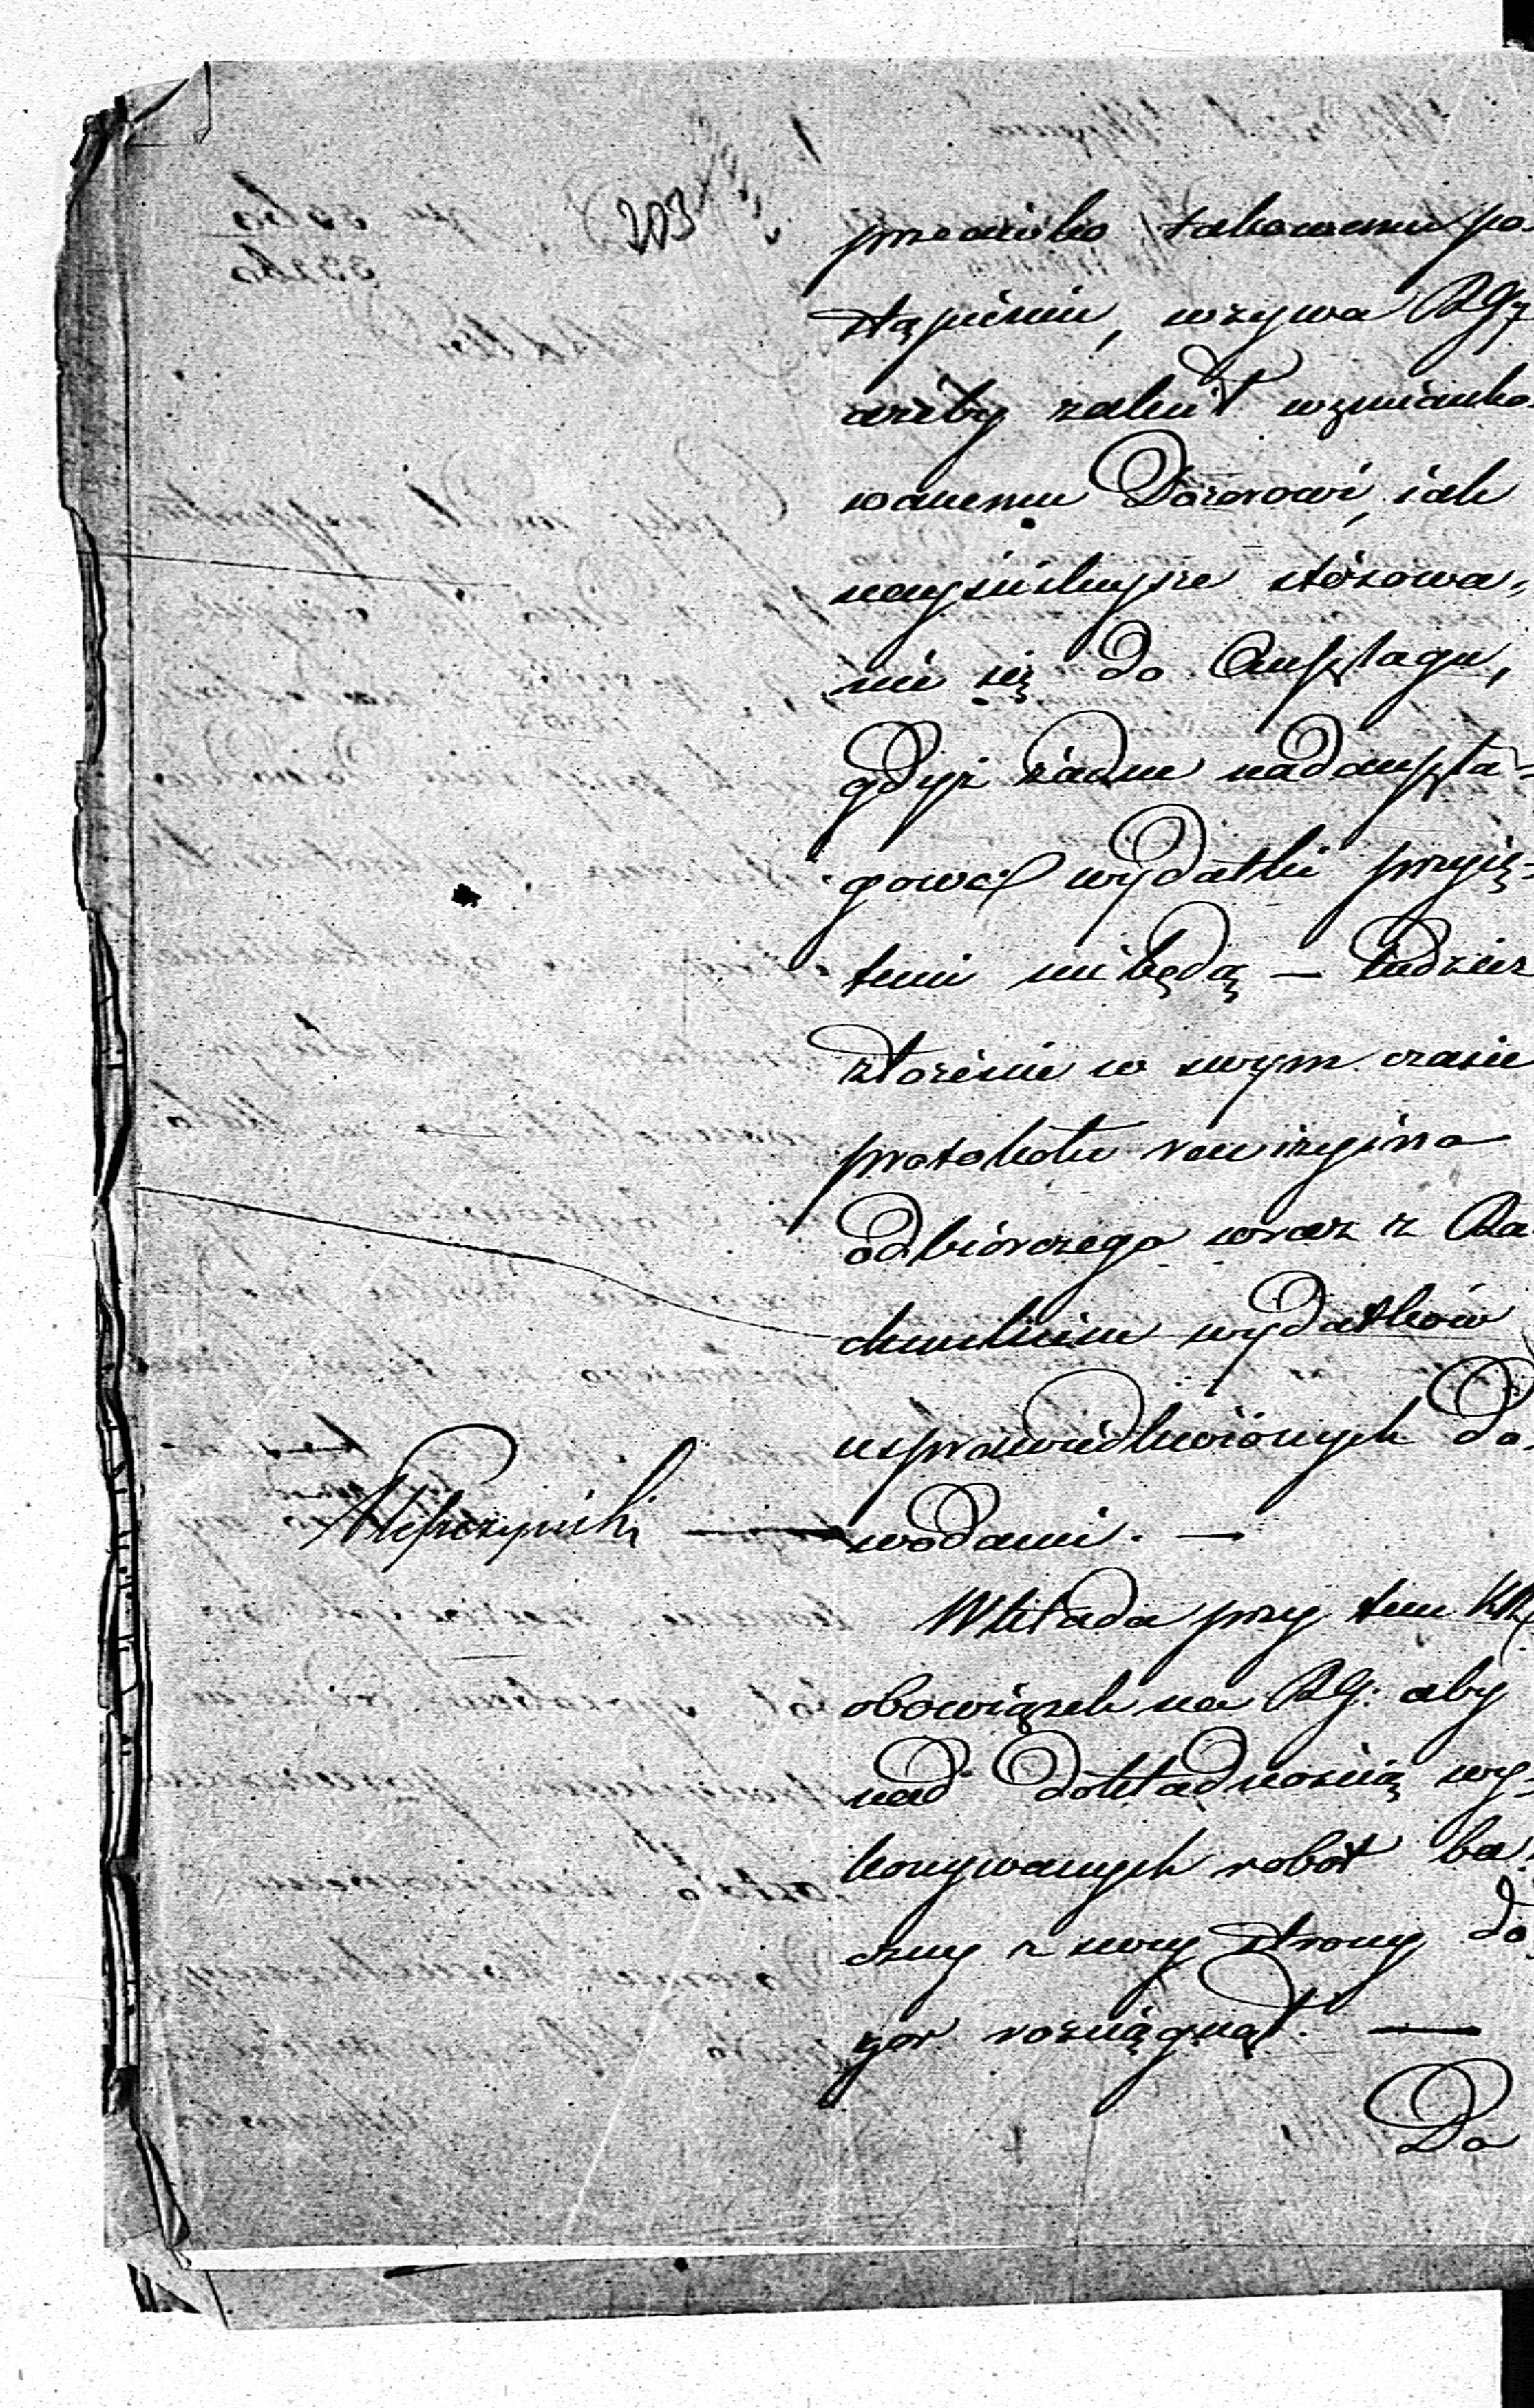 203
przeciwko takowemu po-
stąpieniu, wzywa RG
ażeby zalecił wzmianko-
wanemu Dozorowi, iak
nayściśleysze stósowa-
nie się do Anszlagu,
gdyż żadne nadanszla-
gowe wydatki przyię-
temi niebędą — tudzież
złożenie w swym czasie
protokółu rewizyino
odbiórczego wraz z Ra-
chunkiem wydatków
usprawiedliwiónych do-
wodami. —
Wkłada przy tem KR
obowiązek na RG: aby
nad dokładnością wy-
konywanych robót ba-
czny z swey strony do-
zor rozciągnął. —
Do